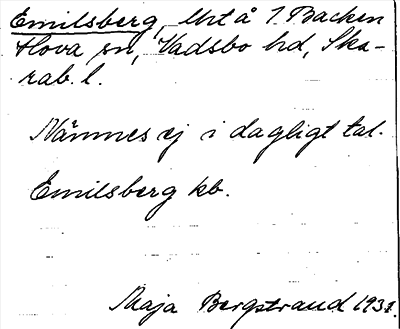 Emilsberg, lht å 1. Backen
Hova sn, Vadsbo hd, Ska-
rab. l.
Nämnes ej i dagligt tal.
Emilsberg kb.
Maja Bergstrand 1931.